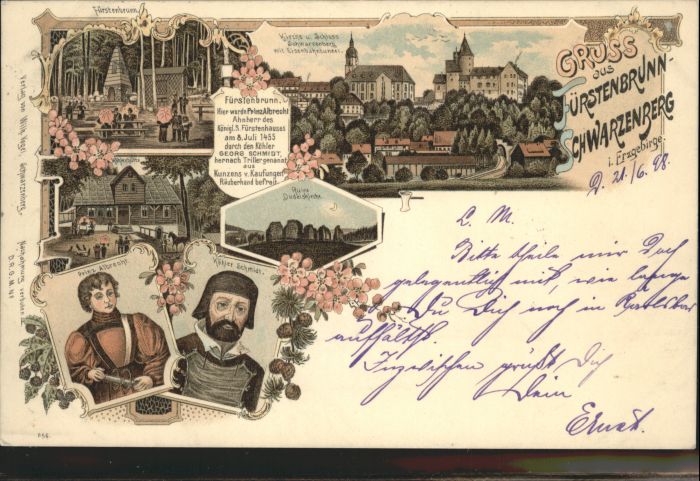 Fürstenbrunn.
Fürstenbrunn.
Hier wurde Prinz Albrecht
Ahnherr des
Königl. S. Fürstenhauses
am 8. Juli 1455
durch den Köhler
GEORG SCHMIDT,
hernach Triller genannt
aus
Kunzens v. Kaufungen
Räuberhand befreit.
Kirche u. Schloss
Schwarzenberg
mit Eisenbahntunnel.
GRUSS
aus
FÜRSTENBRUNN-
SCHWARZENBERG
i. Erzgebirge.
D. 21./6. 98.
Köhlerhütte
Ruine
Dudelskirche.
Prinz Albrecht.
Köhler Schmidt.
L. M.
Bitte theile mir doch
gelegentlich mit, wie lange
Du Dich noch in
aufhältst.
Inzwischen grüßt Dich
Dein
Ernst.
Verlag von Willy Vogel, Schwarzenberg.
Nachahmung verboten
D.R.G.M.